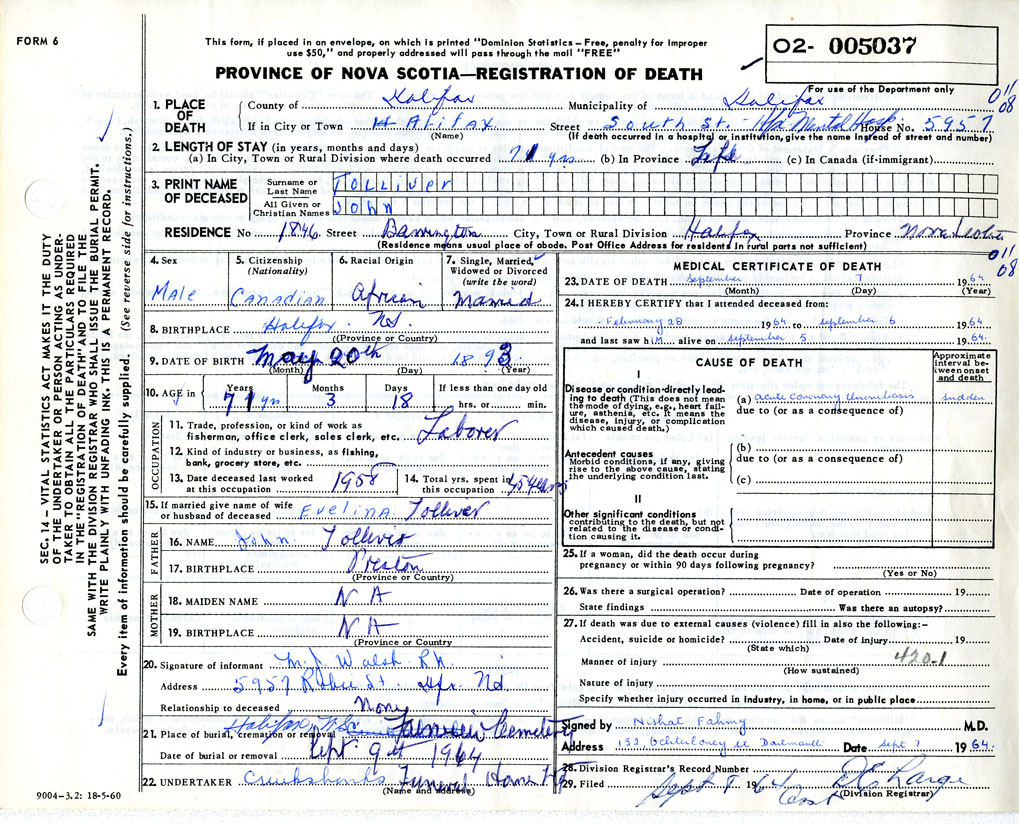 FORM 6
This form, if placed in an envelope, on which is printed "Dominion Statistics – Free, penalty for improper
use $50," and properly addressed will pass through the mail "FREE"
O2- 005037
PROVINCE OF NOVA SCOTIA—REGISTRATION OF DEATH
For use of the Department only
011
08
1. PLACE OF DEATH
County of Halifax Municipality of Halifax
If in City or Town HAlifax Street South St. - Hfx Mental Hosp House No. 5957
(Name) (If death occurred in a hospital or institution, give the name instead of street and number)
2. LENGTH OF STAY (in years, months and days)
(a) In City, Town or Rural Division where death occurred 71 yrs (b) In Province Life (c) In Canada (if immigrant)
3. PRINT NAME OF DECEASED
Surname or Last Name Tolliver
All Given or Christian Names John
RESIDENCE No 1846 Street Barrington City, Town or Rural Division Halifax Province Nova Scotia
(Residence means usual place of abode. Post Office Address for residents in rural parts not sufficient)
011
08
4. Sex
Male
5. Citizenship
(Nationality)
Canadian
6. Racial Origin
African
7. Single, Married, Widowed or Divorced
(write the word)
Married
8. BIRTHPLACE Halifax NS.
(Province or Country)
9. DATE OF BIRTH May 20th 1893
(Month) (Day) (Year)
10. AGE in
Years Months Days If less than one day old
71 yrs 3 18 hrs. or min.
OCCUPATION
11. Trade, profession, or kind of work as
fisherman, office clerk, sales clerk, etc. Laborer
12. Kind of industry or business, as fishing,
bank, grocery store, etc.
13. Date deceased last worked
at this occupation 1958
14. Total yrs. spent in
this occupation 45 years
15. If married give name of wife
or husband of deceased Evelina Tolliver
FATHER
16. NAME John Tolliver
17. BIRTHPLACE Preston
(Province or Country)
MOTHER
18. MAIDEN NAME N A
19. BIRTHPLACE N A
(Province or Country)
20. Signature of informant M. J. Walsh R.N.
Address 5957 Robie St. Hfx NS
Relationship to deceased None
21. Place of burial, cremation or removal Halifax N.S. Fairview Cemetery
Date of burial or removal Sept. 9th 1964
22. UNDERTAKER Cruikshanks Funeral Home Ltd
(Name and address)
9004-3.2: 18-5-60
MEDICAL CERTIFICATE OF DEATH
23. DATE OF DEATH September 7 1964
(Month) (Day) (Year)
24. I HEREBY CERTIFY that I attended deceased from:
February 28 1964 to september 6 1964
and last saw him alive on september 5 1964
CAUSE OF DEATH
Approximate interval between onset and death
I
Disease or condition directly leading to death (This does not mean the mode of dying, e.g., heart failure, asthenia, etc. It means the disease, injury, or complication which caused death.)
(a) acute coronary thrombosis sudden
due to (or as a consequence of)
Antecedent causes
Morbid conditions, if any, giving rise to the above cause, stating the underlying condition last.
(b)
due to (or as a consequence of)
(c)
II
Other significant conditions
contributing to the death, but not related to the disease or condition causing it.
25. If a woman, did the death occur during
pregnancy or within 90 days following pregnancy?
(Yes or No)
26. Was there a surgical operation? Date of operation 19
State findings Was there an autopsy?
27. If death was due to external causes (violence) fill in also the following:–
Accident, suicide or homicide? Date of injury 19
(State which)
420.1
Manner of injury
(How sustained)
Nature of injury
Specify whether injury occurred in industry, in home, or in public place
Signed by Nishat Fahmy M.D.
Address 152, Ochterloney st Dartmouth Date sept 7 1964.
28. Division Registrar's Record Number
29. Filed Sept 8 1964
(Division Registrar)
SEC. 14 – VITAL STATISTICS ACT MAKES IT THE DUTY
OF THE UNDERTAKER OR PERSON ACTING AS UNDERTAKER TO OBTAIN ALL THE PARTICULARS REQUIRED
IN THE "REGISTRATION OF DEATH" AND TO FILE THE
SAME WITH THE DIVISION REGISTRAR WHO SHALL ISSUE THE BURIAL PERMIT.
WRITE PLAINLY WITH UNFADING INK. THIS IS A PERMANENT RECORD.
Every item of information should be carefully supplied. (See reverse side for instructions.)